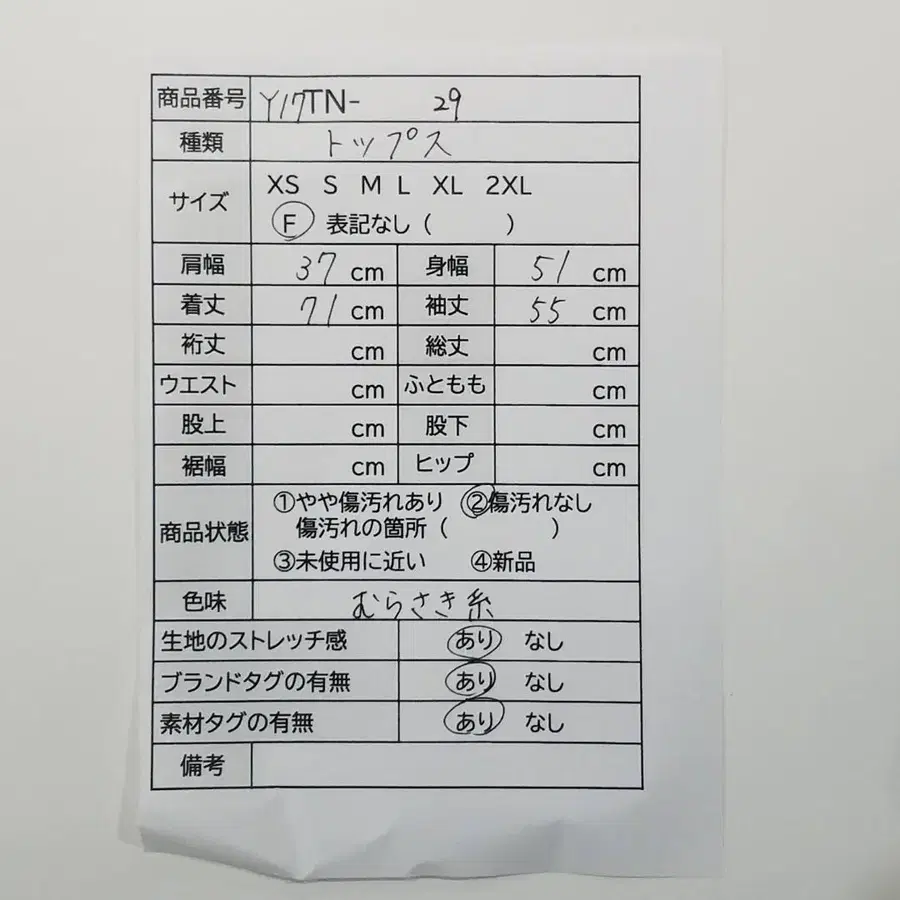 商品番号 Y17TN- 29
種類 トップス
サイズ XS S M L XL 2XL
F 表記なし ( )
肩幅 37 cm 身幅 51 cm
着丈 71 cm 袖丈 55 cm
裄丈 cm 総丈 cm
ウエスト cm ふともも cm
股上 cm 股下 cm
裾幅 cm ヒップ cm
商品状態 ①やや傷汚れあり ②傷汚れなし
傷汚れの箇所 ( )
③未使用に近い ④新品
色味 むらさき糸
生地のストレッチ感 あり なし
ブランドタグの有無 あり なし
素材タグの有無 あり なし
備考